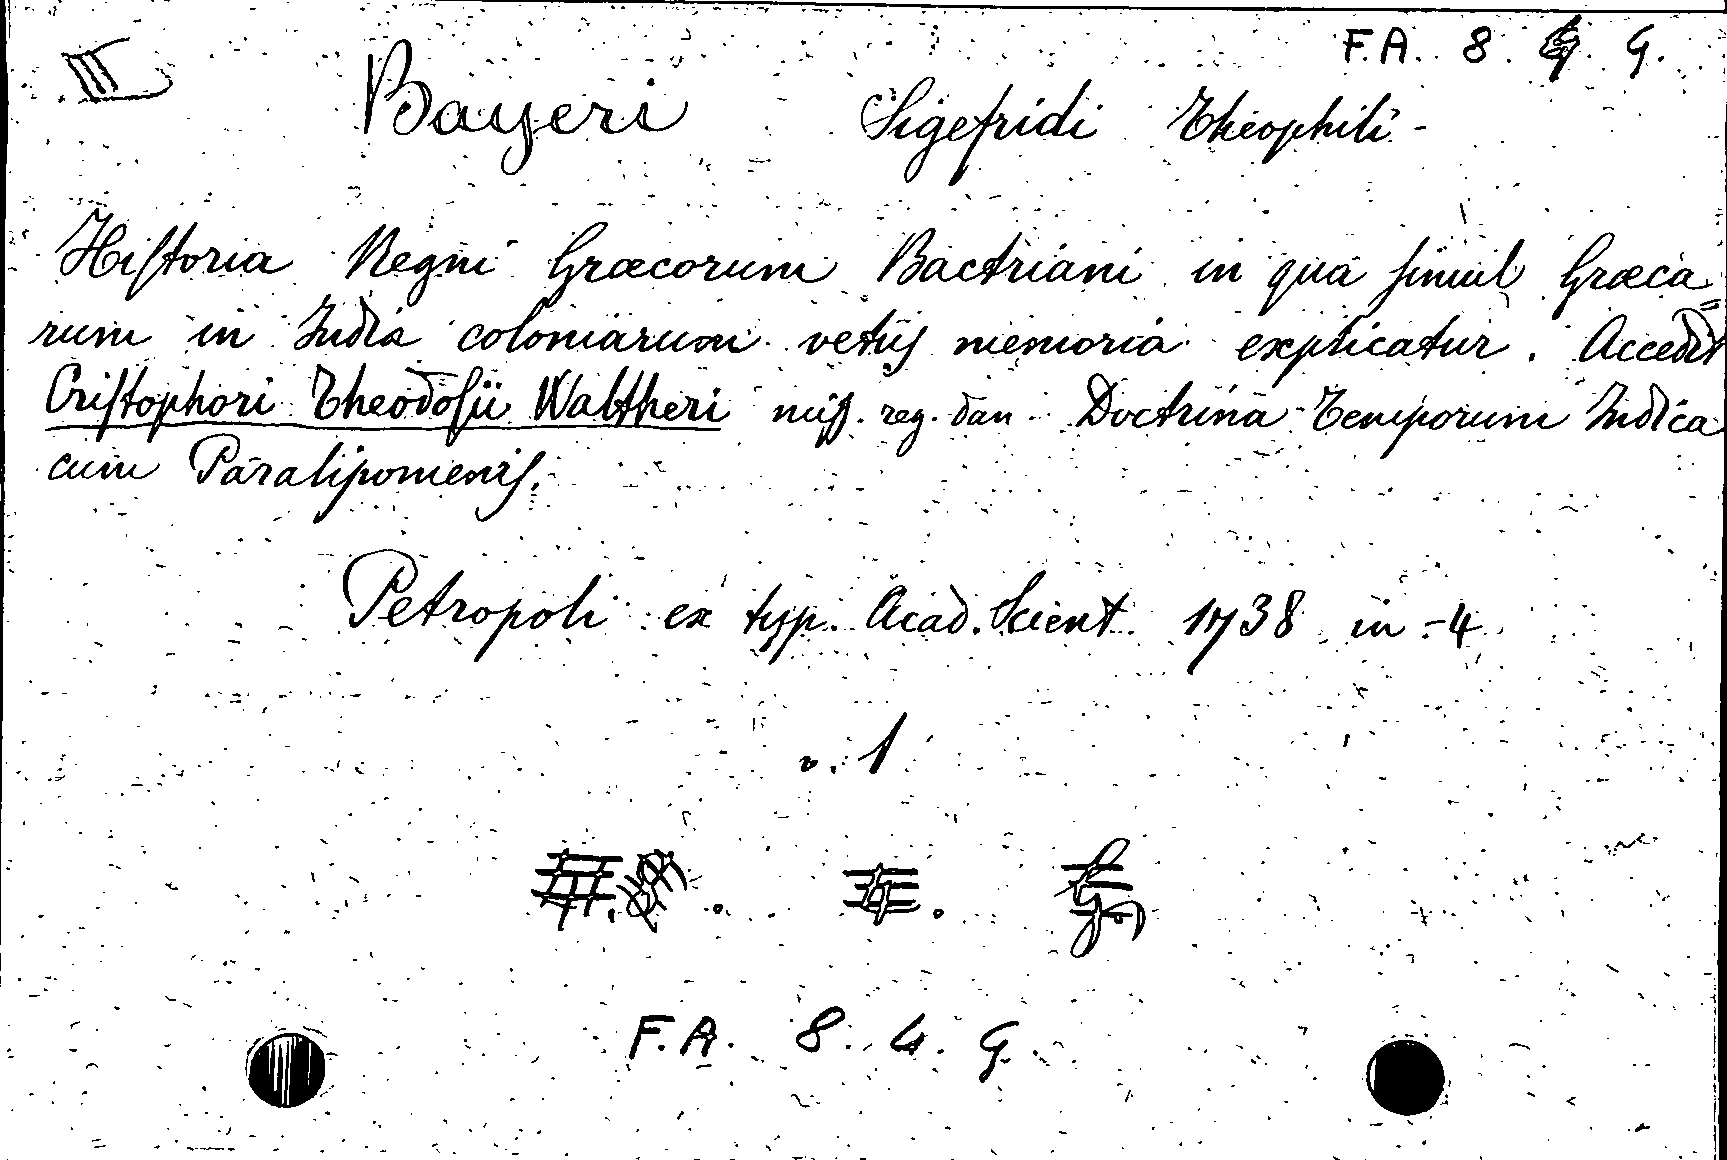 F.A. 8. G.
Bayeri Sigefridi Theophili -
Hiſtoria Regni Græcorum Bactriani in qua ſimul Græca=
rum in India coloniarum vetus memoria explicatur. Accedit
Criſtophori Theodoſii Waltheri miſſ. reg. dan Doctrina Temporum Indica
cum Paralipomenis.
Petropoli ex typ. Acad. Scient. 1738 in-4
v. 1
F.A. 8. 4. G.